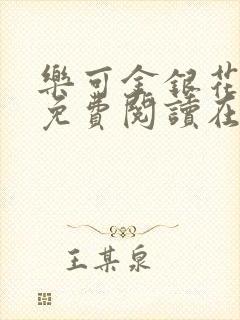 樂可金銀花
免費閱讀在
王某泉